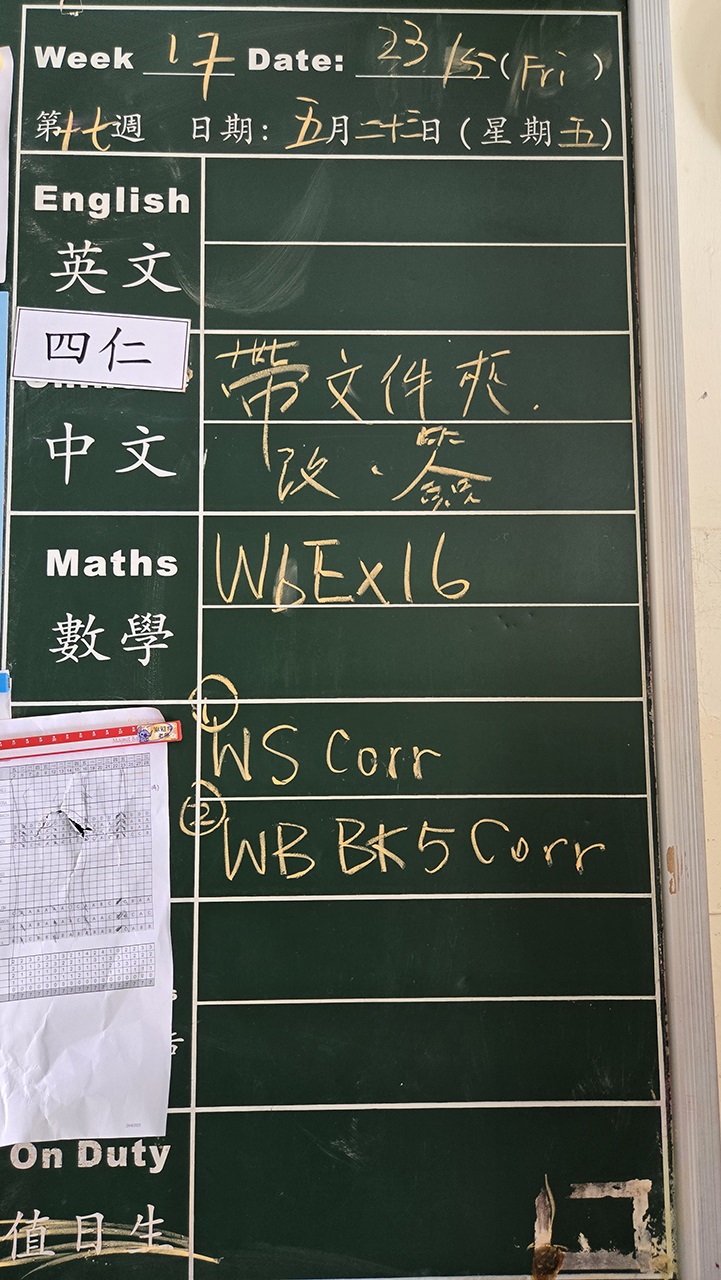 Week 17 Date: 23/5 (Fri)
第十七週 日期: 五月二十三日 (星期五)
English
英文
四仁
帶文件夾.
中文
改.
Maths
WbEx16
數學
①
WS Corr
②
WB BK5 Corr
On Duty
值日生